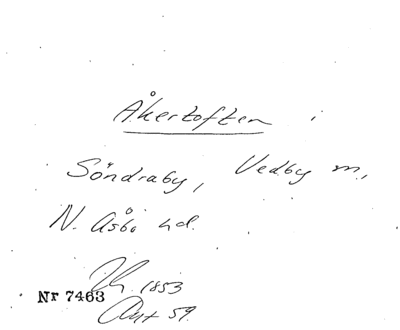 Åkertoften i
Söndraby, Vedby m,
N. Åsbo hd.
1853
Nr 7463
59.